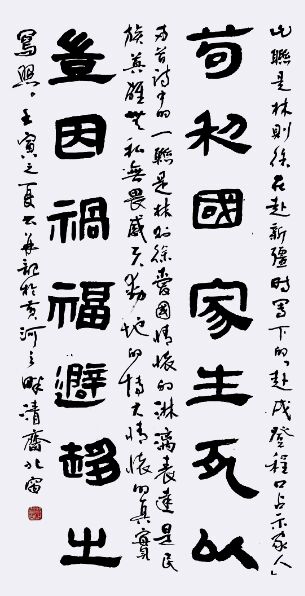 此聯是林則徐在赴新疆時寫下的“赴戍登程口占示家人”
苟利國家生死以
首詩中的一聯是林則徐愛國情懷的淋漓表達是民
族英雄無私無畏感天動地的博大情懷的真實
豈因禍福避趨之
寫照。壬寅之夏書并記於黃河之畔清齋北窗